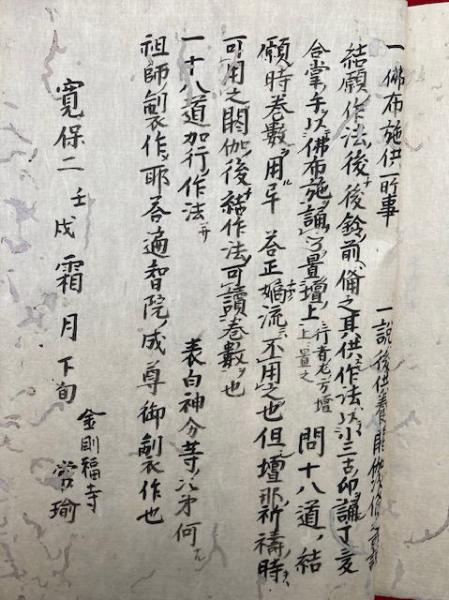 一佛布施供一所事 一説後供養閼伽後
結願ノ作法後ノ後鈴ノ前ニ備之其供作法ハ以小三古印誦丁吽
合掌シテ以佛布施ヲ誦シテ置壇上ニ 行者左方壇上置之 問十八道ノ結
願ノ時巻數ヲ用ルヤ 答正嫡流ニ不用之也但壇那祈禱ノ時ハ
可用之閼伽ノ後結ノ作法ニ可讀巻數ヲ也
一十八道加行ノ作法并 表白神分等ノ次第何レノ
祖師ノ製作ソ耶答遍智院ノ成尊御製作也
寛保二壬戌霜月下旬
金剛福寺
常瑜